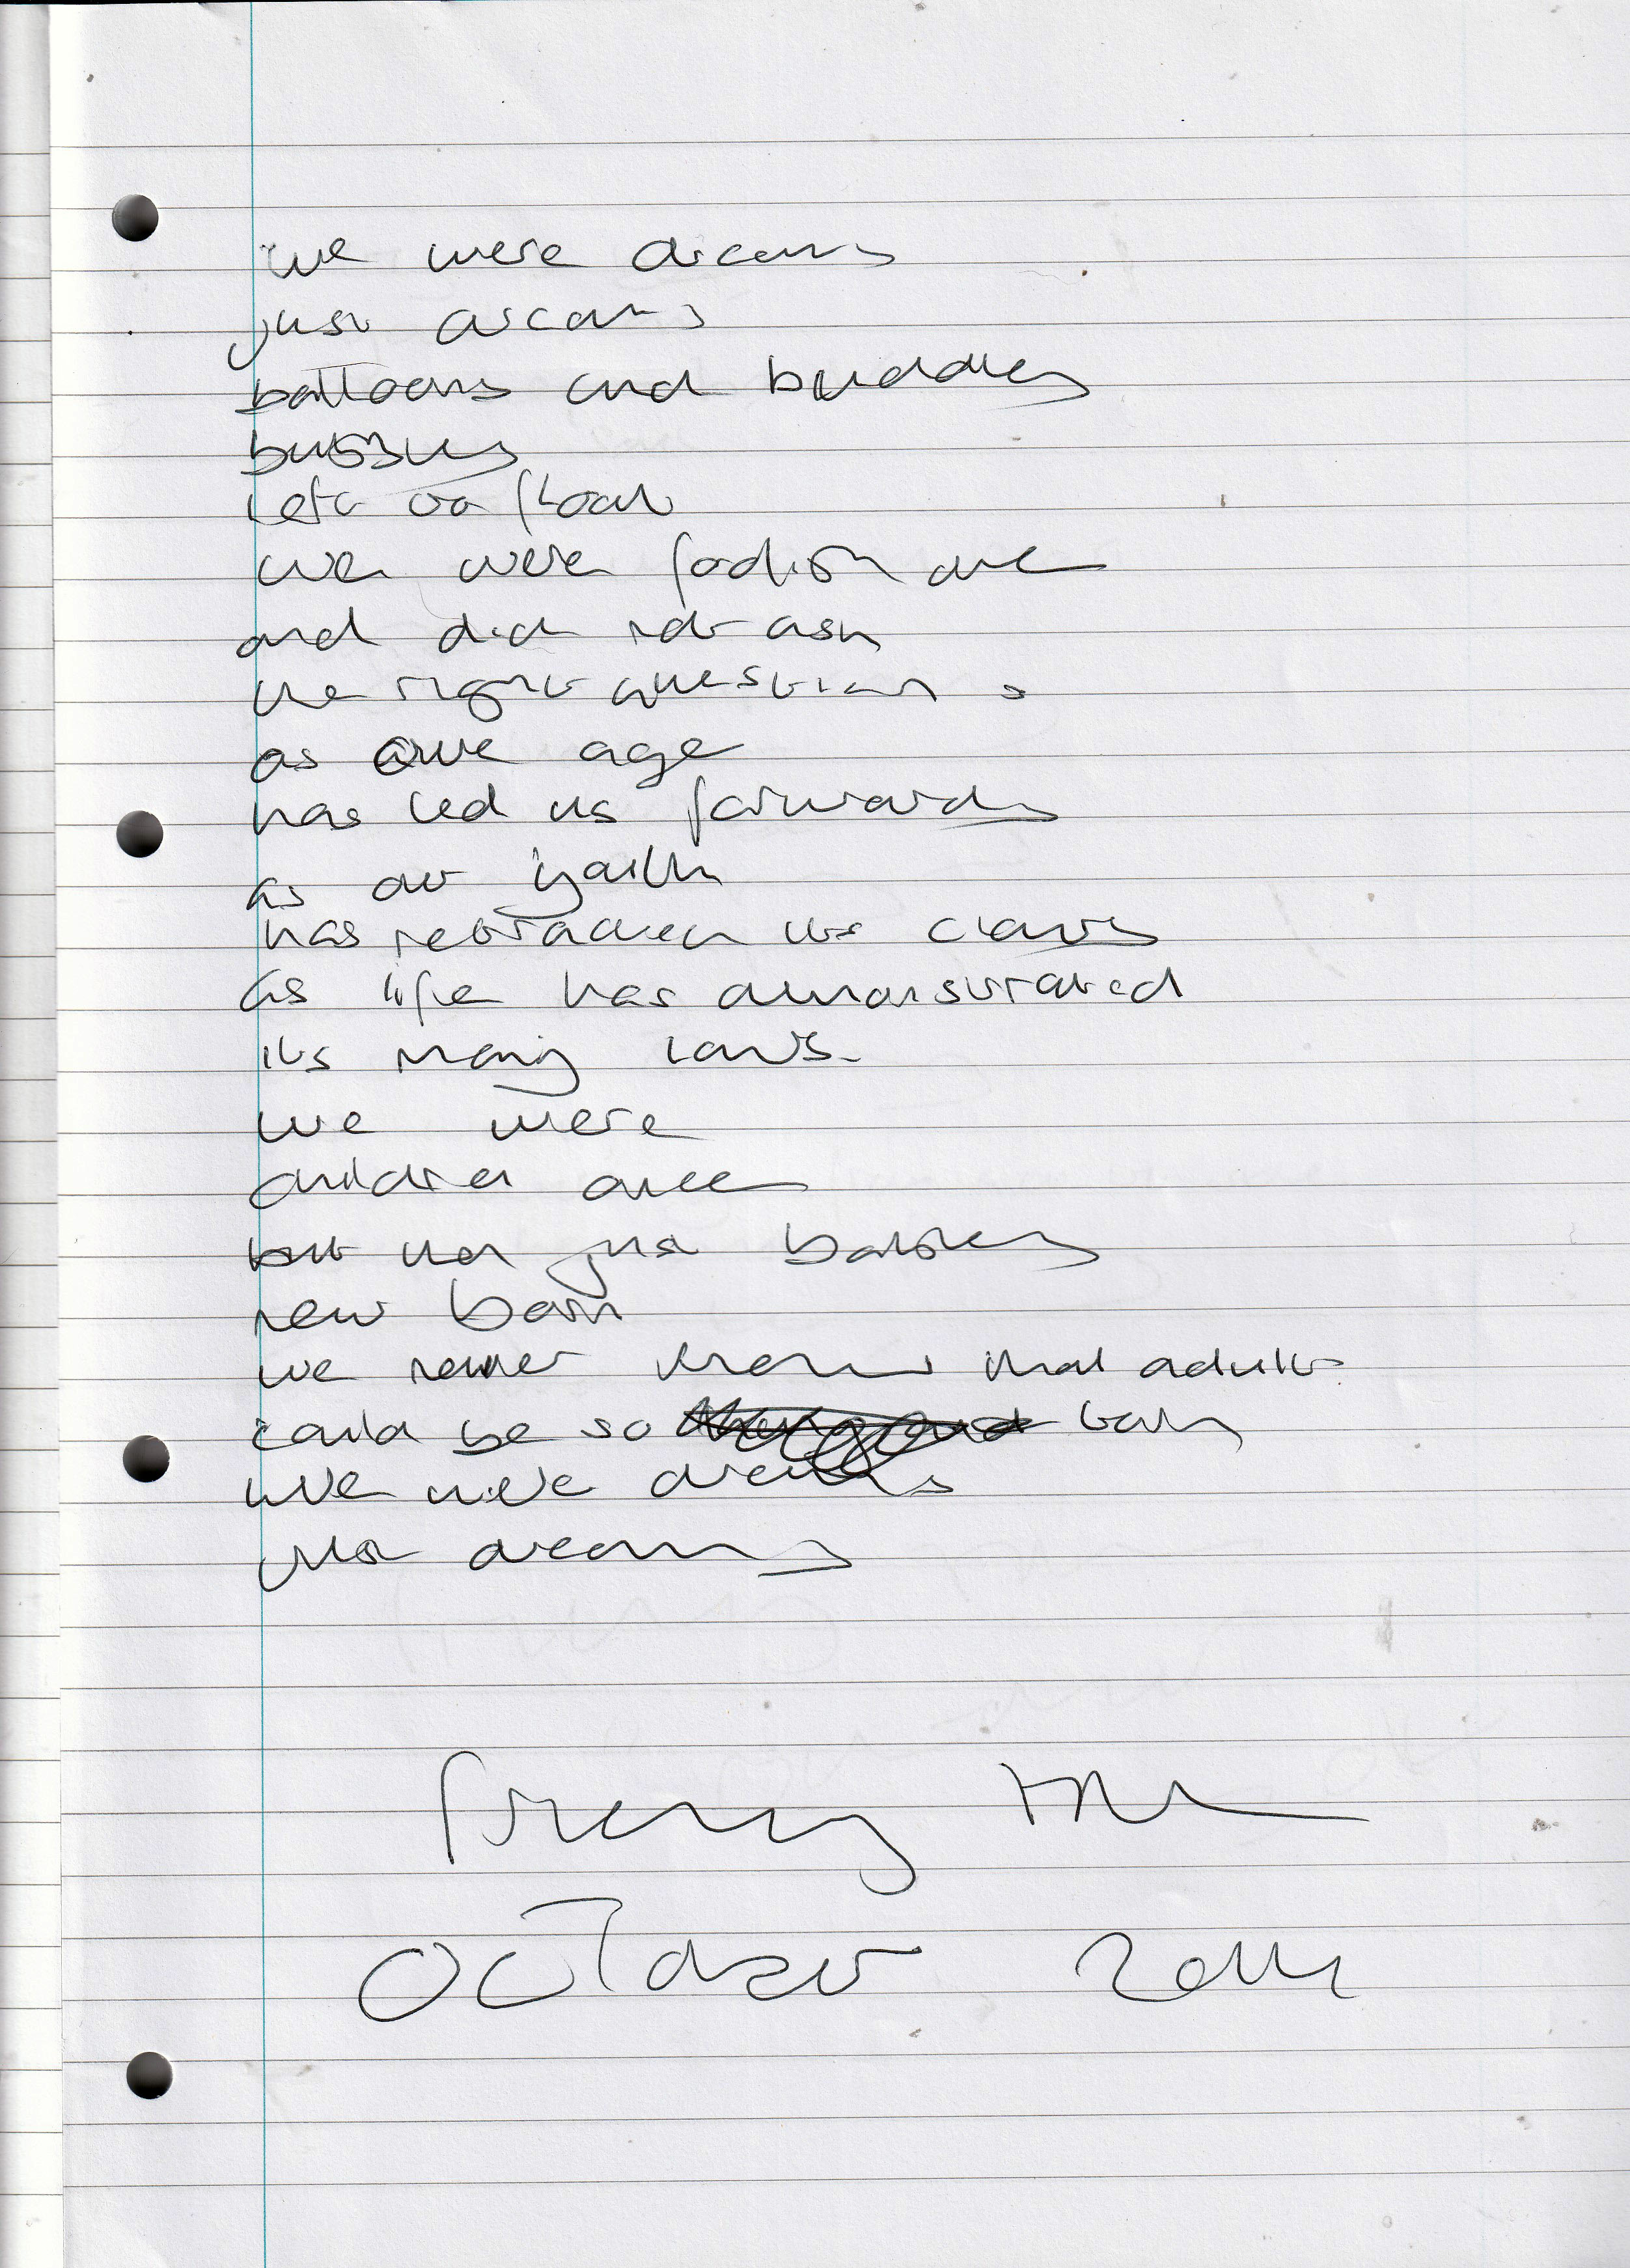 we were dreams
just dreams
balloons and buddies
bubbles
left to float
we were
and did not ask
the right questions
as our age
has led us forwards
as our youth
has retracted its claws
as life has demonstrated
its many laws.
we were
children once
but then just babies
new born
we never knew that adults
could be so torn
we were dreams
just dreams
October 2014